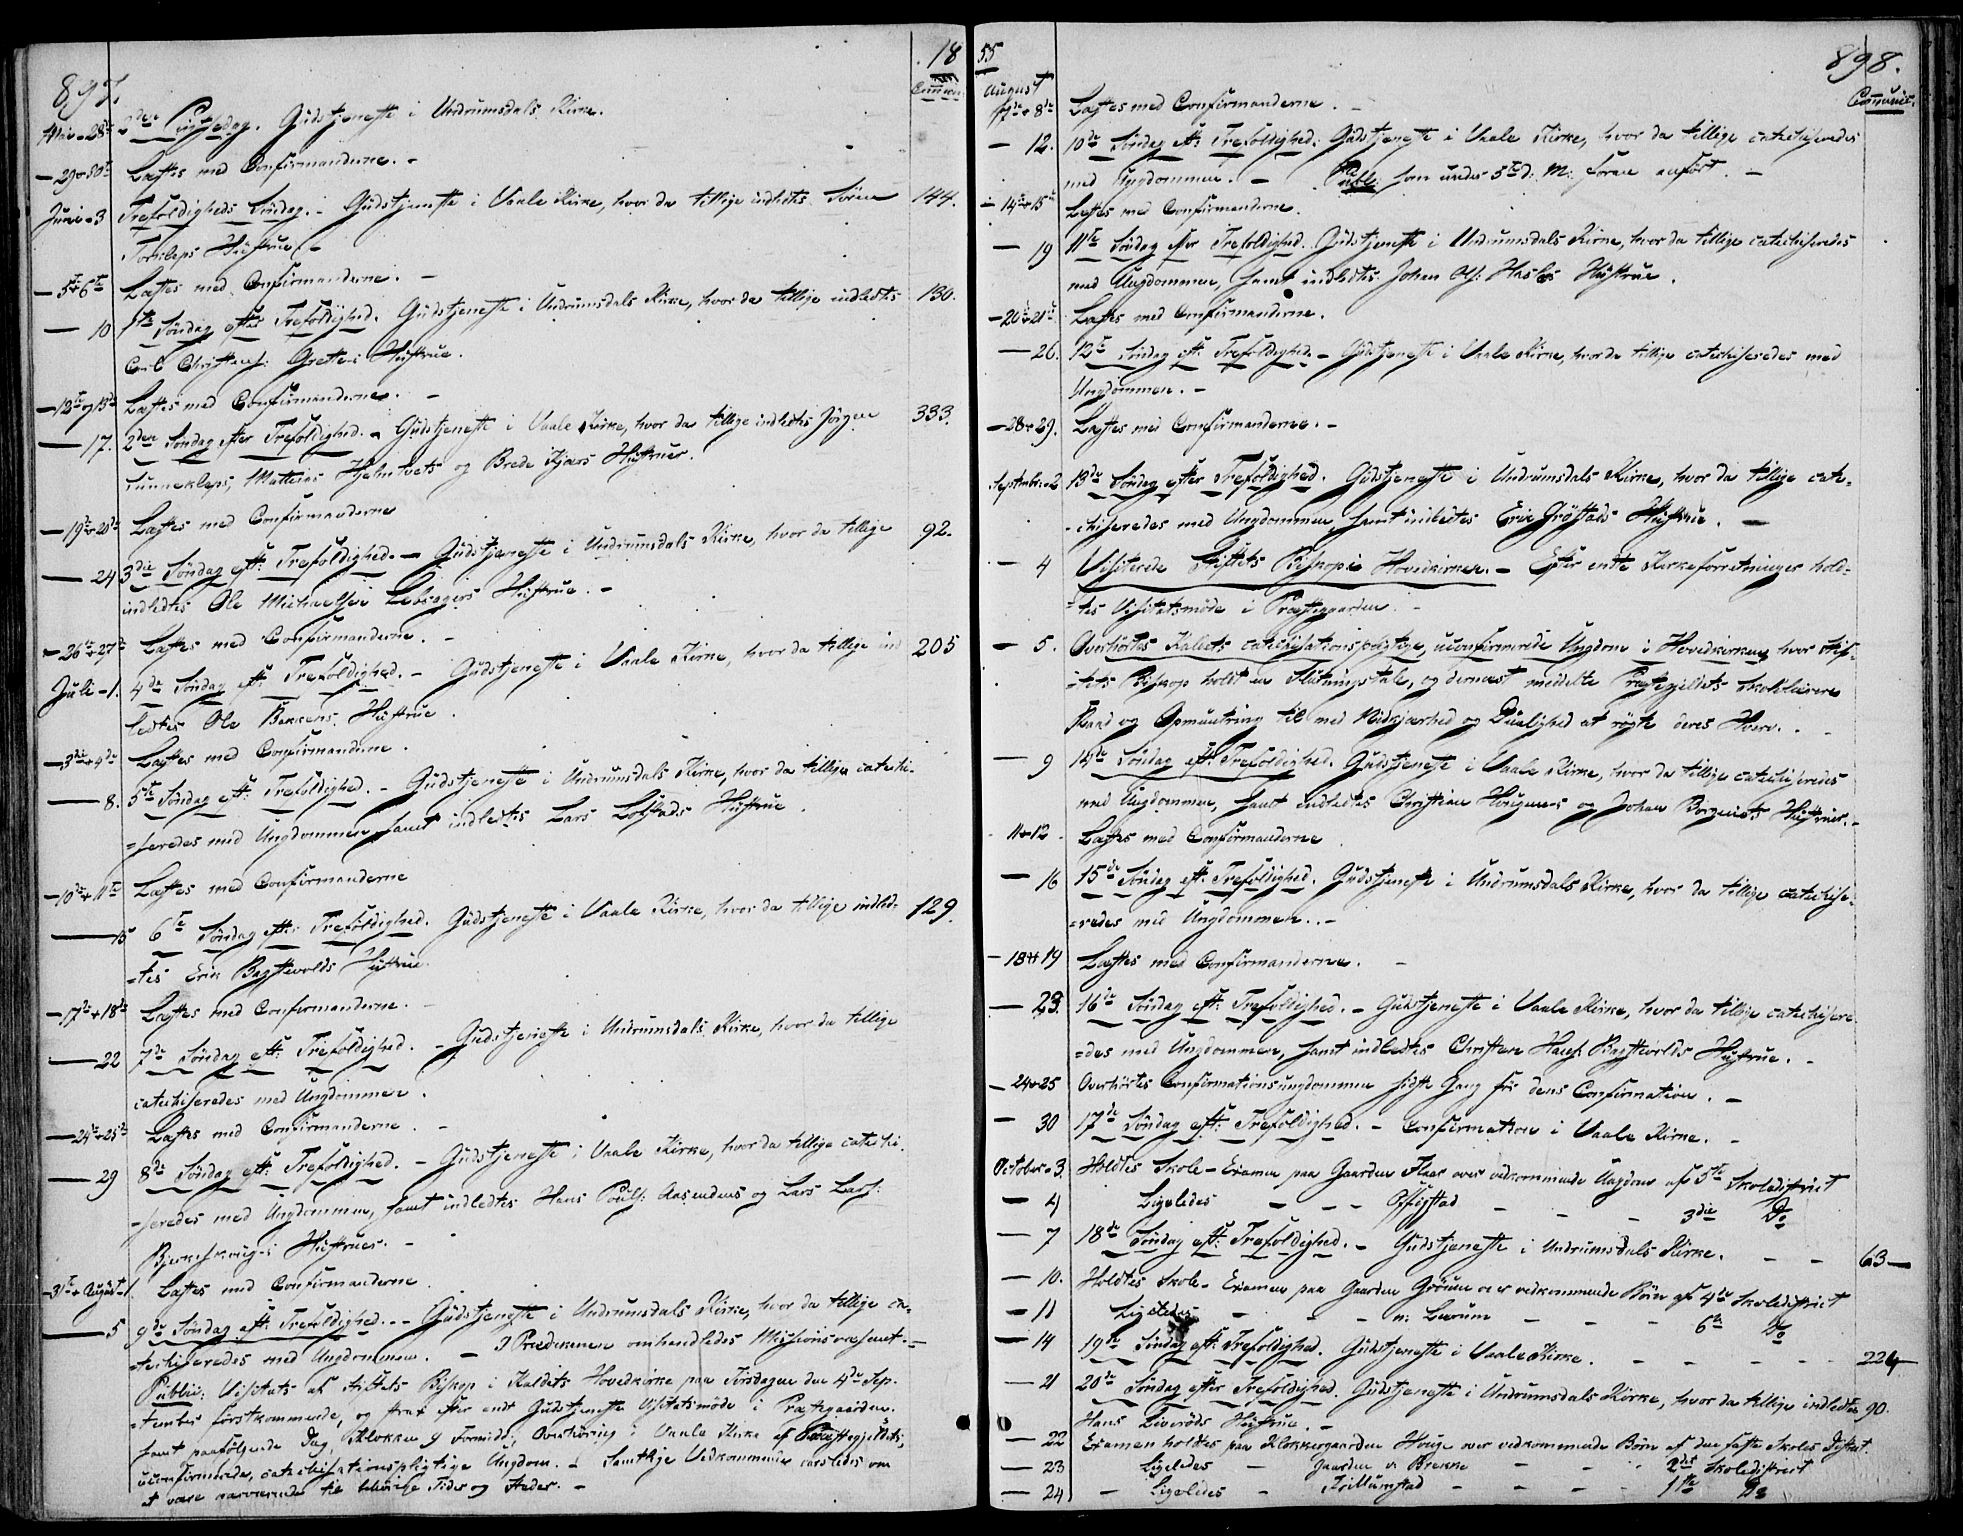 897.
18
Commun.
Mai - 28de 2den Pintsedag. Gudstjeneste i Undrumsdals Kirke.
— 29 & 30te Læstes med Confirmanderne. -
Juni - 3 Trefoldigheds Søndag. - Gudstjeneste i Vaale Kirke, hvor da tillige indledtes Sören 144.
Hustrue. -
— 5te & 6te Læstes med Confirmanderne. -
— 10 1ste Søndag efter Trefoldighed. Gudstjeneste i Undrumsdals Kirke, hvor da tillige indledtes 130.
Carl Christians: Grettes Hustrue.
— 12te og 13de Læstes med Confirmanderne. -
— 17. 2den Søndag efter Trefoldighed. - Gudstjeneste i Vaale Kirke, hvor da tillige indledtes Jörgen 333.
Sunnekleps, Mathias Hjelmtvets og Brede Kjærs Hustruer.
— 19de & 20de Læstes med Confirmanderne
— 24 3die Søndag eft: Trefoldighed. - Gudstjeneste i Undrumsdals Kirke, hvor da tillige 92.
indledtes Ole Michaelsen Lebsagers Hustrue. -
— 26de & 27de Læstes med Confirmanderne. -
Juli - 1. 4de Søndag eft: Trefoldighed. - Gudstjeneste i Vaale Kirke, hvor da tillige ind 205
ledtes Ole Bakkens Hustrue.
— 3die & 4de Læstes med Confirmanderne.
— 8. 5te Søndag eft: Trefoldighed. - Gudstjeneste i Undrumsdals Kirke, hvor da tillige catechi-
=seredes med Ungdommen, samt indledtes Lars Löfstads Hustrue.
— 10de & 11te Læstes med Confirmanderne
— 15 6te Søndag efter Trefoldighed. Gudstjeneste i Vaale Kirke, hvor da tillige indled- 129.
=tes Erik Bagstevolds Hustrue.
— 17de & 18de Læstes med Confirmanderne. -
— 22 7de Søndag eft: Trefoldighed. - Gudstjeneste i Undrumsdals Kirke, hvor da tillige
catechiseredes med Ungdommen.
— 24de & 25de Læstes med Confirmanderne. -
— 29 8de Søndag eft: Trefoldighed. - Gudstjeneste i Vaale Kirke, hvor da tillige catechi-
=seredes med Ungdommen, samt indledtes Hans Pouls: Aasendens og Lars Lars:
Bjerkeskoug-s Hustruer. -
— 31te & August - 1. Læstes med Confirmanderne.
— 5 9de Søndag eft: Trefoldighed. - Gudstjeneste i Undrumsdals Kirke, hvor da tillige ca-
=techiseredes med Ungdommen. - I Prædikenen omhandledes Missionsvæsenet. -
Public: Visitats af Stiftets Biskop i Kaldets Hovedkirke paa Tirsdagen den 4de Sep-
=tember førstkommende, og strax efter endt Gudstjeneste Visitatsmöde i Præstegaarden.
samt paafölgende Dag, Klokken 9 Formidd; Overhöring i Vaale Kirke af Præstegjeldets,
uconfirmerede, catechisationspligtige Ungdom. - Samtlige Vedkommende varsledes om
at være nærværende til belövrige Tider og Steder. -
55
898.
August
Commun.
7de & 8de Læstes med Confirmanderne. -
— 12. 10de Søndag eft: Trefoldighed. Gudstjeneste i Vaale Kirke, hvor da tillige catechiseredes
med Ungdommen. - Publ: som under 5te d: M: foran anført. -
— 14de & 15de Læstes med Confirmanderne.
— 19 11te Søndag efter Trefoldighed. Gudstjeneste i Undrumsdals Kirke, hvor da tillige catechiseredes
med Ungdommen, samt indledtes Johan Ols: Hasles Hustrue.
— 20de & 21de Læstes med Confirmanderne.
— 26. 12te Søndag eft: Trefoldighed. - Gudstjeneste i Vaale Kirke, hvor da tillige catechiseredes med
Ungdommen. -
— 28 & 29. Læstes med Confirmanderne. -
Septembr: - 2 13de Søndag efter Trefoldighed. Gudstjeneste i Undrumsdals Kirke, hvor da tillige cate-
-chiseredes med Ungdommen, samt indledtes Erik Gröstads Hustrue. -
— 4 Visiterede Stiftets Biskop i Hovedkirken. - Efter endte Kirkeforretninger hold-
=tes Visitatsmöde i Præstegaarden. -
— 5. Overhörtes Kaldets catechisationspligtige, uconfirmerede Ungdom i Hovedkirken, hvor Stif-
=tets Biskop holdt en Slutningstale, og dernæst meddelte Præstegjeldets Skolelærere
Raad og Opmuntring til med Nidkjærhed og Dualighed at rögte deres Hverv. -
— 9 14de Søndag eft: Trefoldighed. Gudstjeneste i Vaale Kirke, hvor da tillige catechiseredes
med Ungdommen, samt indledtes Christian Hougnes-s og Johan Borgen's Hustruer. -
11 & 12. Læstes med Confirmanderne
— 16 15de Søndag eft: Trefoldighed. Gudstjeneste i Undrumsdals Kirke, hvor da tillige catechise-
=redes med Ungdommen. -
— 18 & 19 Læstes med Confirmanderne. -
— 23. 16de Søndag eft: Trefoldighed. - Gudstjeneste i Vaale Kirke, hvor da tillige catechisere
=des med Ungdommen, samt indledtes Christen Hans: Bagstevolds Hustrue. -
— 24 & 25 Overhörtes Confirmationsungdommen sidste Gang för dens Confirmation. -
— 30 17de Søndag eft: Trefoldighed. - Confirmation i Vaale Kirke. -
October - 3. Holdtes Skole-Examen paa Gaarden Flaar over vedkommende Ungdom af 5te Skoledistrict
— 4 Ligeledes - - - - - - 3die Do
— 7 18de Søndag eft: Trefoldighed. - Gudstjeneste i Undrumsdals Kirke. - - 63 —
— 10. Holdtes Skole-Examen paa Gaarden Gröum over vedkommende Börn af 4de Skoledistrict
— 11 Ligeledes - - - n: Leerum - - - 6te Do
— 14 19de Søndag eft: Trefoldighed. Gudstjeneste i Vaale Kirke. - - - - - 224
— 21 20de Søndag efter Trefoldighed. Gudstjeneste i Undrumsdals Kirke, hvor da tillige indledtes 90.
Hans Liveröds Hustrue. -
— 22 Examen holdtes paa Klokkergaarden Houge over vedkommende Börn af den faste Skoles District.
— 23 Ligeledes - Gaarden v: Brekke - - - 2det Skoledistrict
— 24 - Ligeledes - - - - - 1ste Do